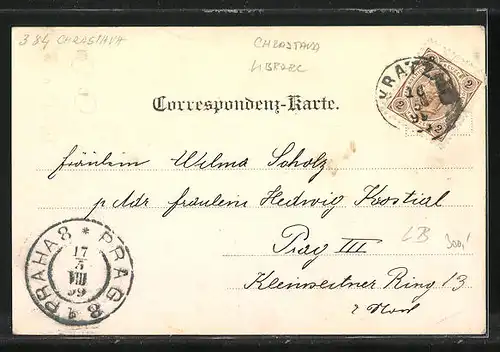 384 CHRASTAVA
CHRASTAVA
LIBEREC
KRATZAU
2 2
Correspondenz-Karte.
Fräulein Wilma Scholz
p Adr Fräulein Hedwig Kostial
Prag III
LB 300,-
Kleinseitner Ring 13
PRAHA 8 * PRAG 8
17
5
VIII
99